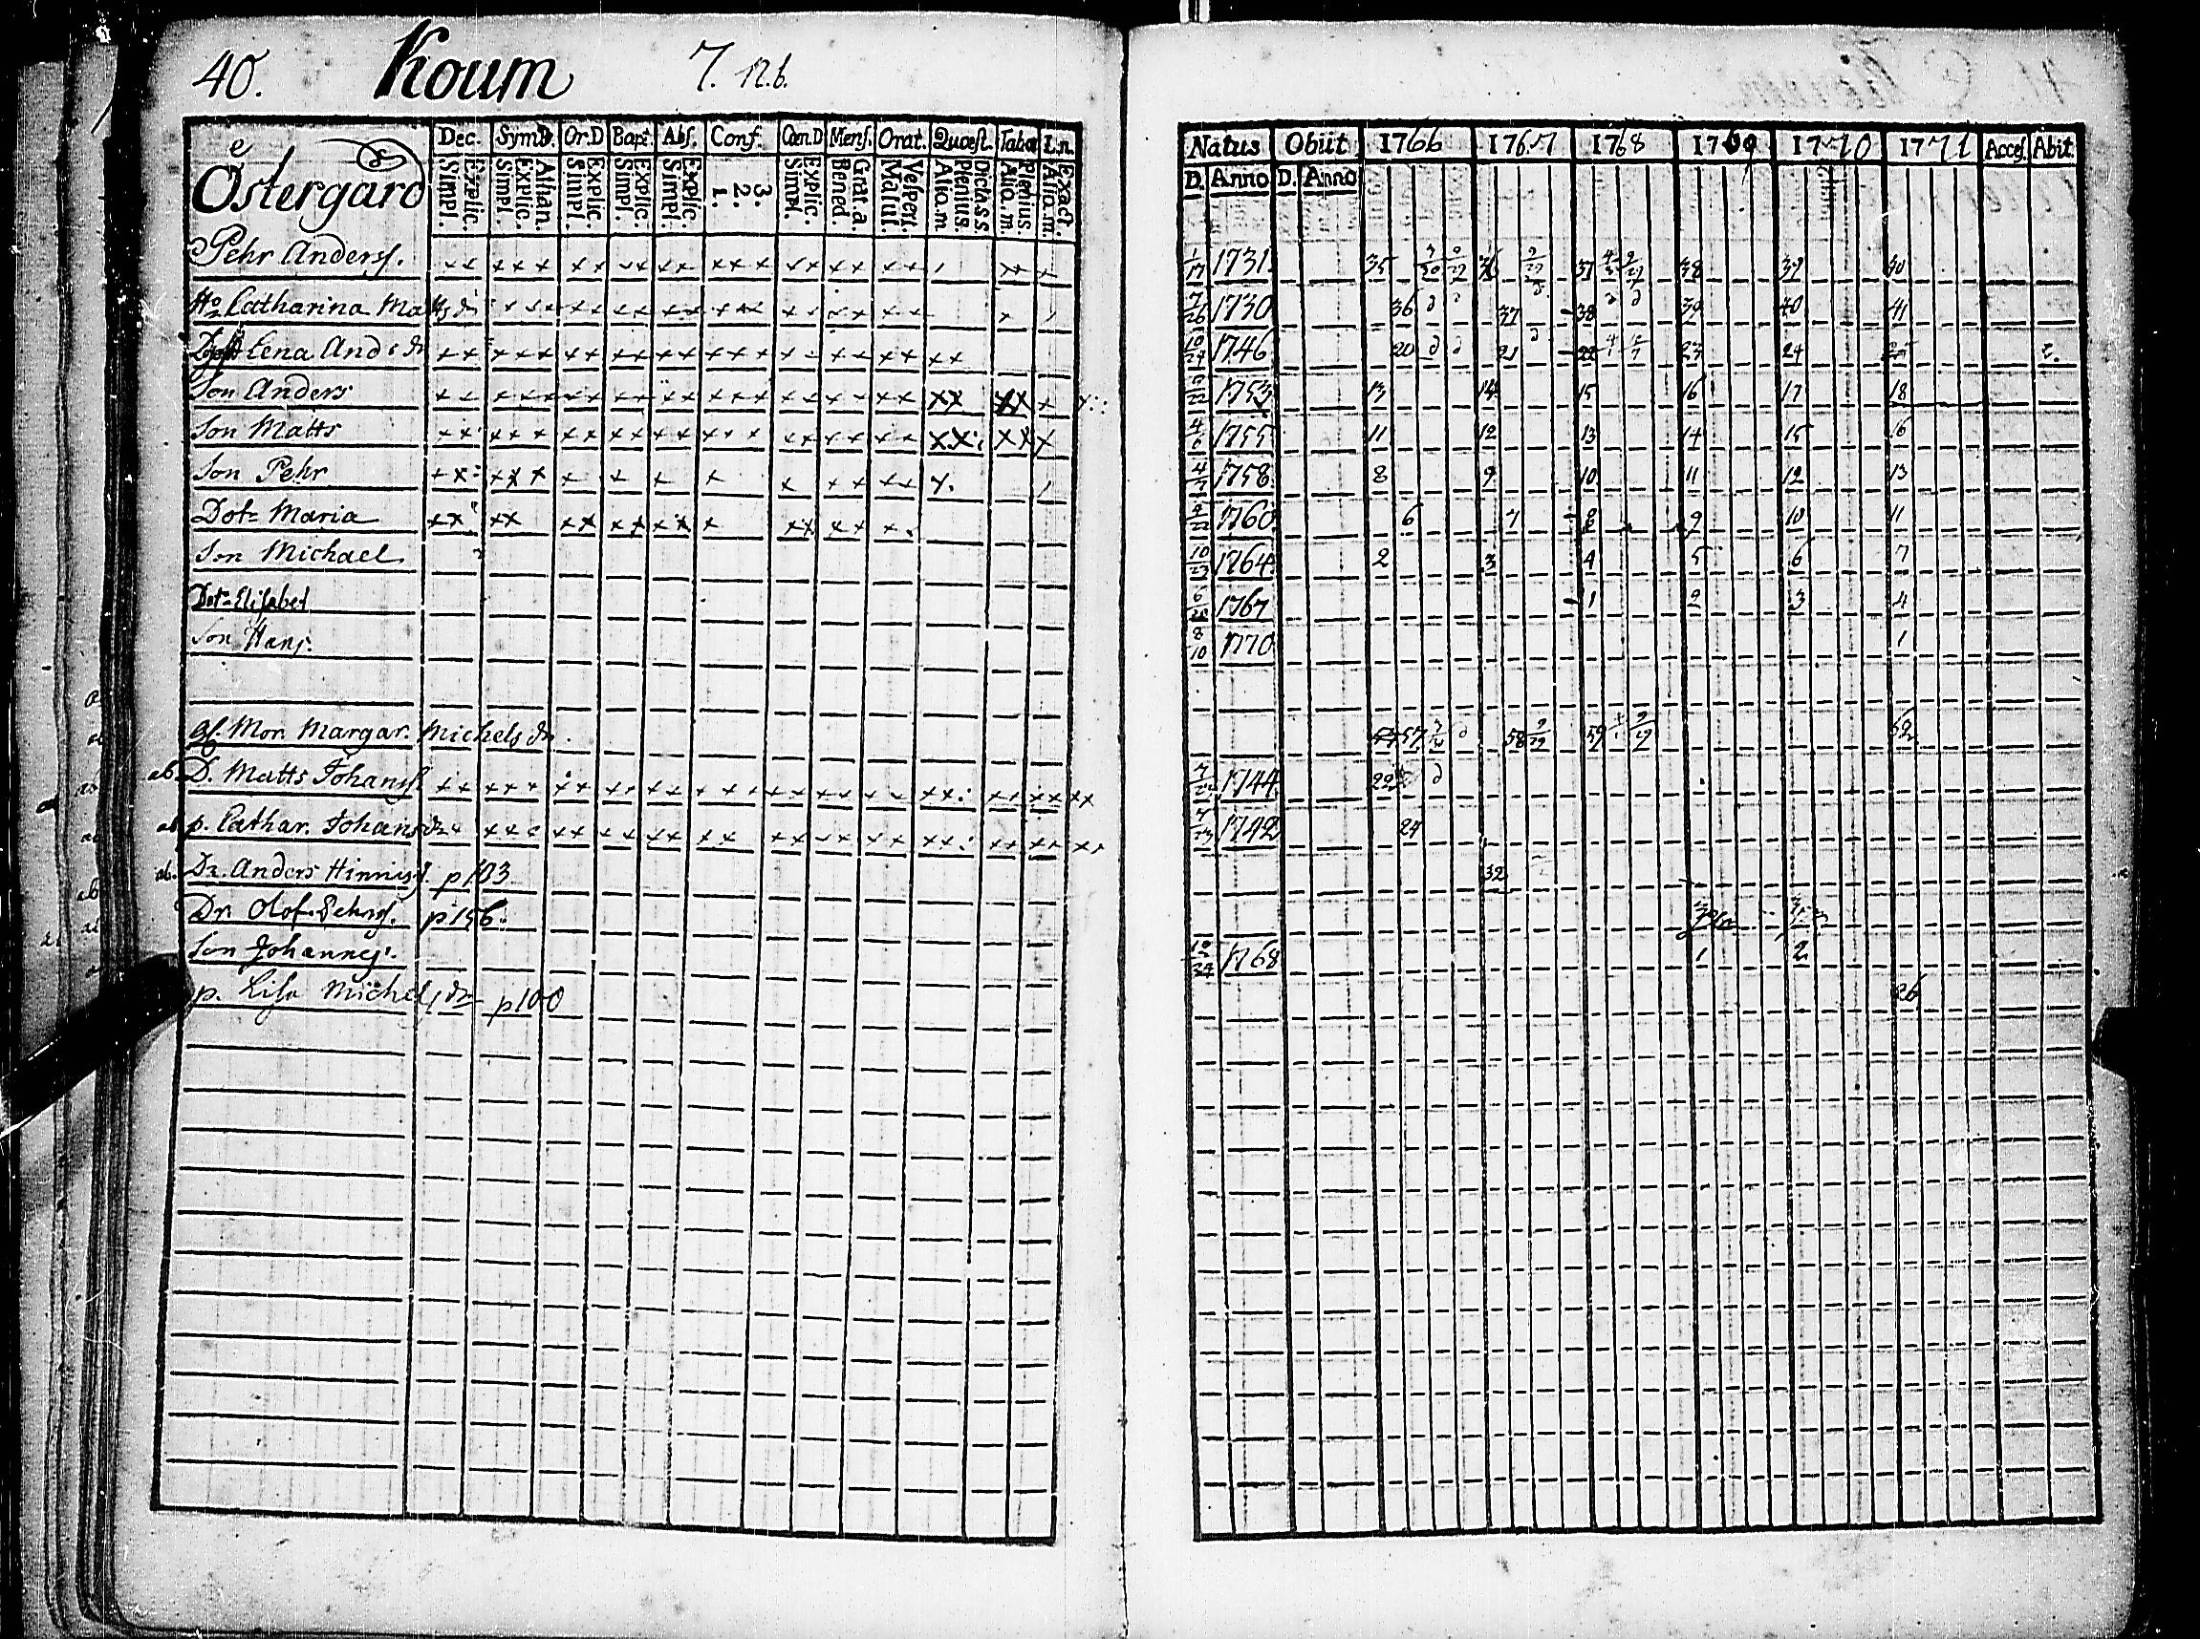 40. Koum 7. n.b.
Östergård
Dec. Symb. Or.D Bapt. Abs. Conf. Cœn.D Mens. Orat. Quæst. Taba
Simpl. Explic. Simpl. Explic. Athan. Simpl. Explic. Simpl. Explic. Simpl. Explic. 1. 2. 3. Simpl. Explic. Bened. Grat.a. Matut. Vespert. Alio.m Plenius. Dict.s.s. Alio.m Plenius Alio.m. Exact.
Pehr Anderss.
Catharina
Lena
Son Anders
Son Matts
Son Pehr
Dot. Maria
Son Michael
Dot. Elisabet
Son Hans.
Mor Margar. Michels dr.
ab. D. Matts Johanss
ab p. Cathar. Johans dr
ab. Dr. Anders Hinriss. p 103
Dr. Olof Pehrss. p 156.
Son Johannes.
p. Lisa Michels dr p 100
Natus Obiit 1766 1767 1768 1769 1770 1771 Acces. Abit.
D. Anno D. Anno
1/17 1731 35 36 37 38 39 40
7/26 1730 36 37 38 39 40 41
10/24 1746 20 21 22 23 24 25
9/22 1753 13 14 15 16 17 18
4/6 1755 11 12 13 14 15 16
4/7 1758 8 9 10 11 12 13
1760 6 7 8 9 10 11
10/23 1764 2 3 4 5 6 7
1767 1 2 3 4
8/10 1770 1
57 58 59 62
1744 22
1742 24
32
1768 1 2
26